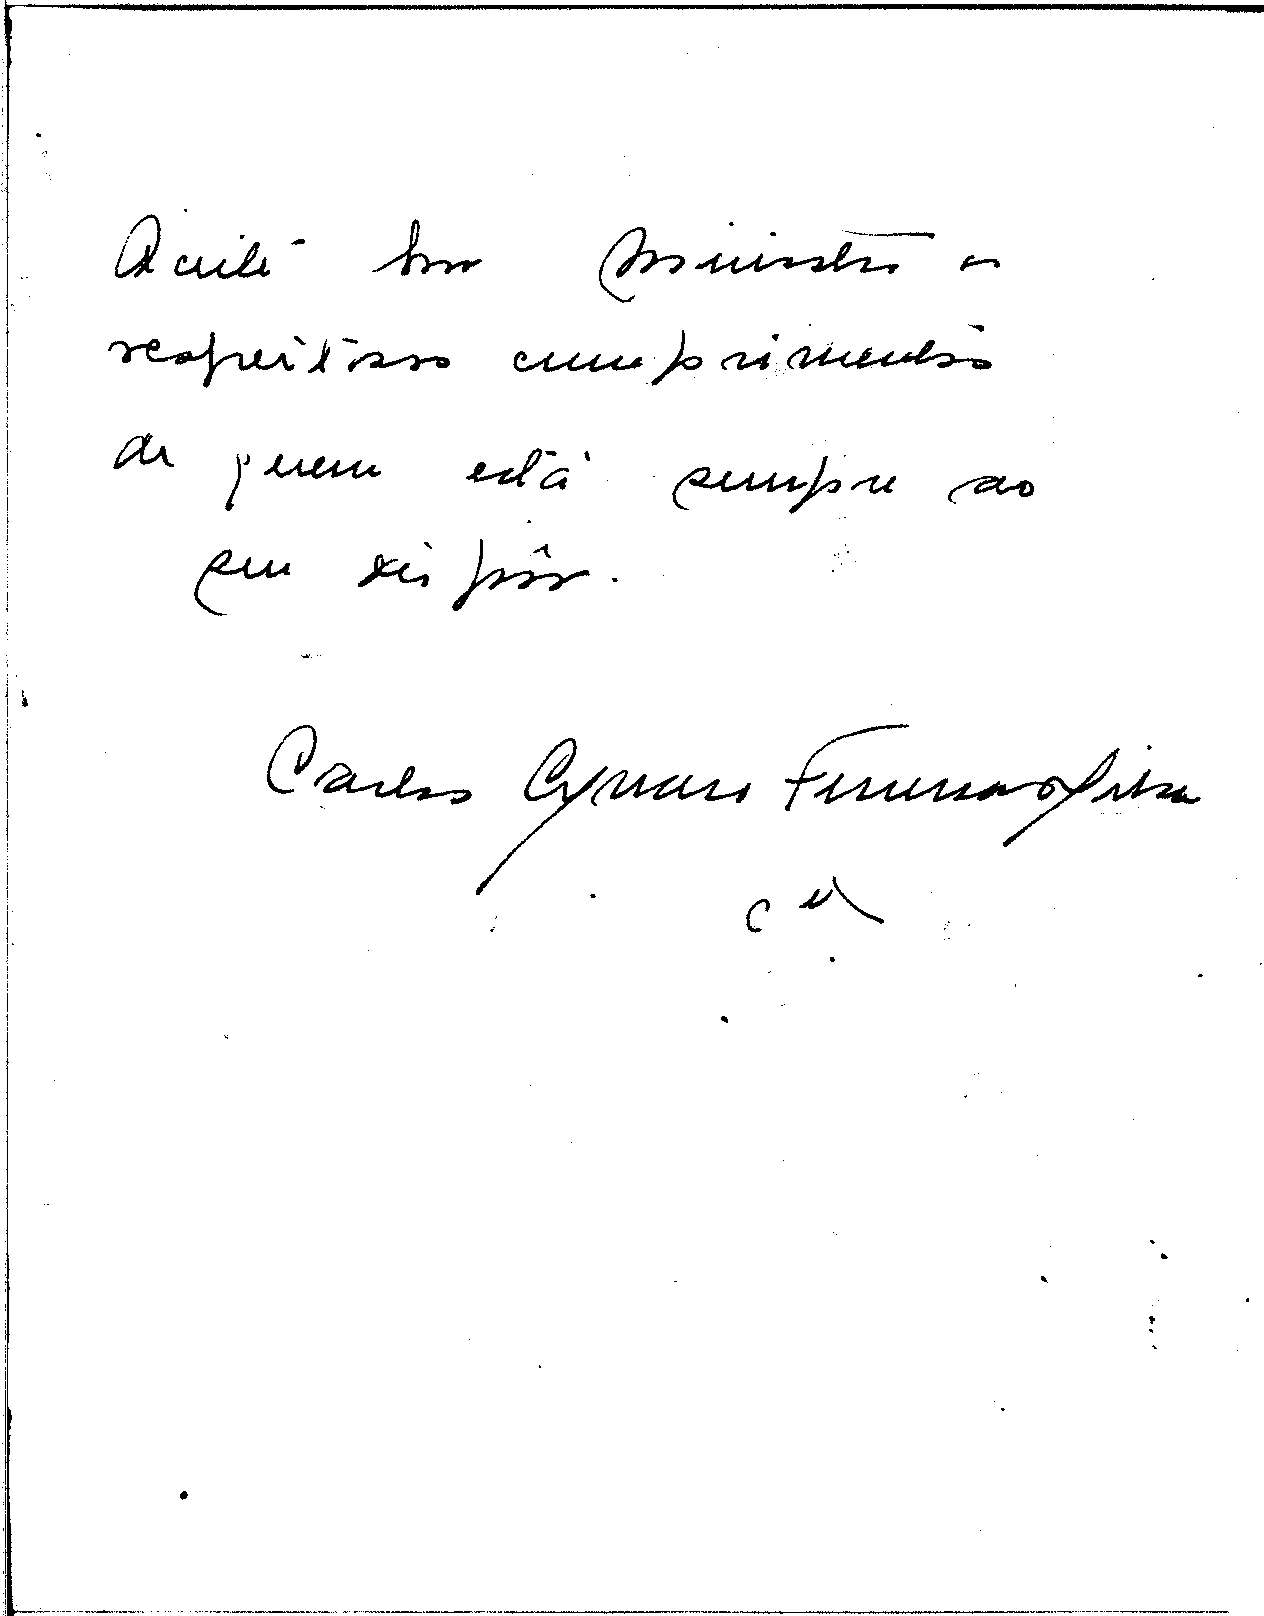 Aceite bom Ministro os
respeitosos cumprimentos
de quem está sempre ao
seu dispôr.
Carlos Cynaro Ferreira da Silva
cel